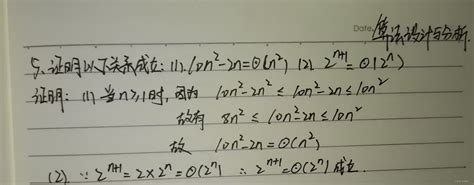 Date.
算法设计与分析.
5. 证明以下关系成立: (1). 10n²-2n=Θ(n²) (2) 2ⁿ⁺¹=Θ(2ⁿ)
证明: (1) 当n≥1时, 因为 10n²-2n² ≤ 10n²-2n ≤ 10n²
故有 8n² ≤ 10n²-2n ≤ 10n²
故 10n²-2n = Θ(n²)
(2). ∵ 2ⁿ⁺¹=2×2ⁿ=Θ(2ⁿ) ∴ 2ⁿ⁺¹=Θ(2ⁿ) 成立.